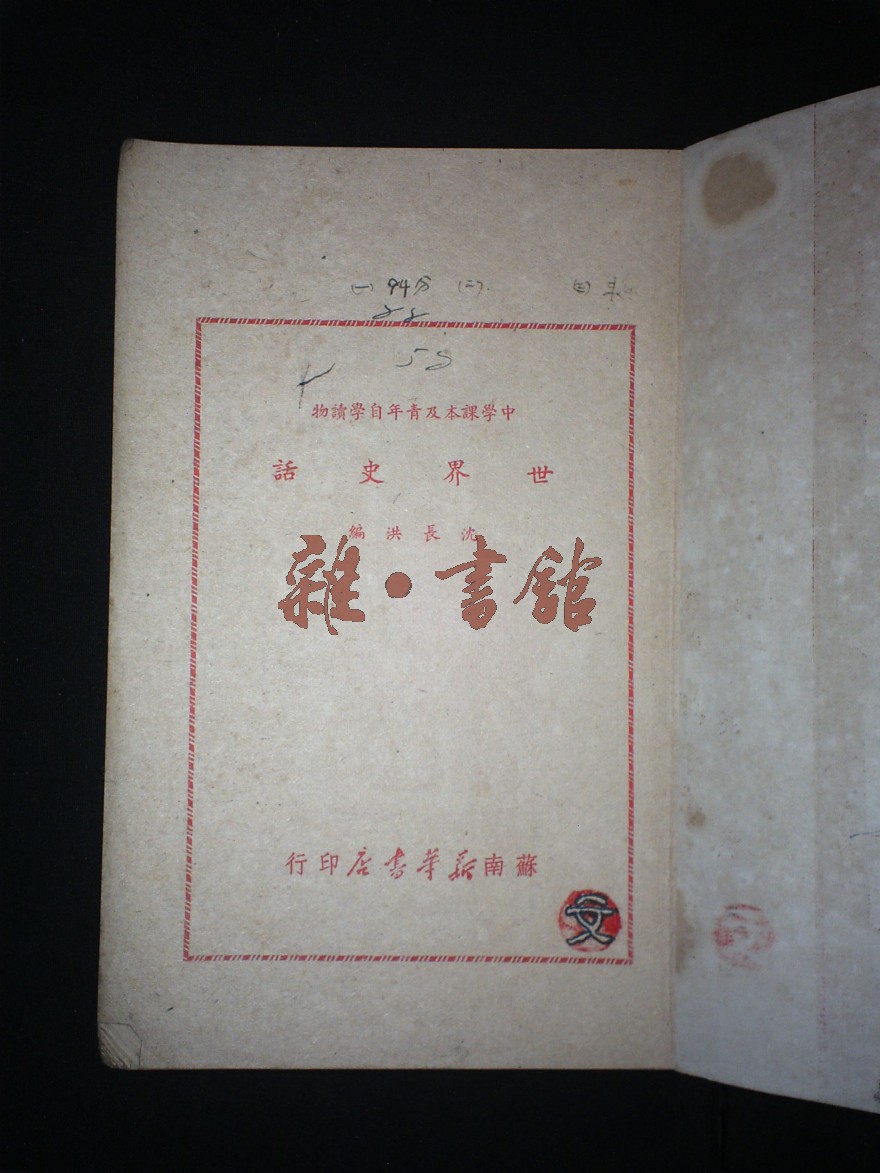 (一) 94分 (二)
58
中學課本及青年自學讀物
世界史話
沈長洪編
雜·書館
蘇南新華書店印行
文